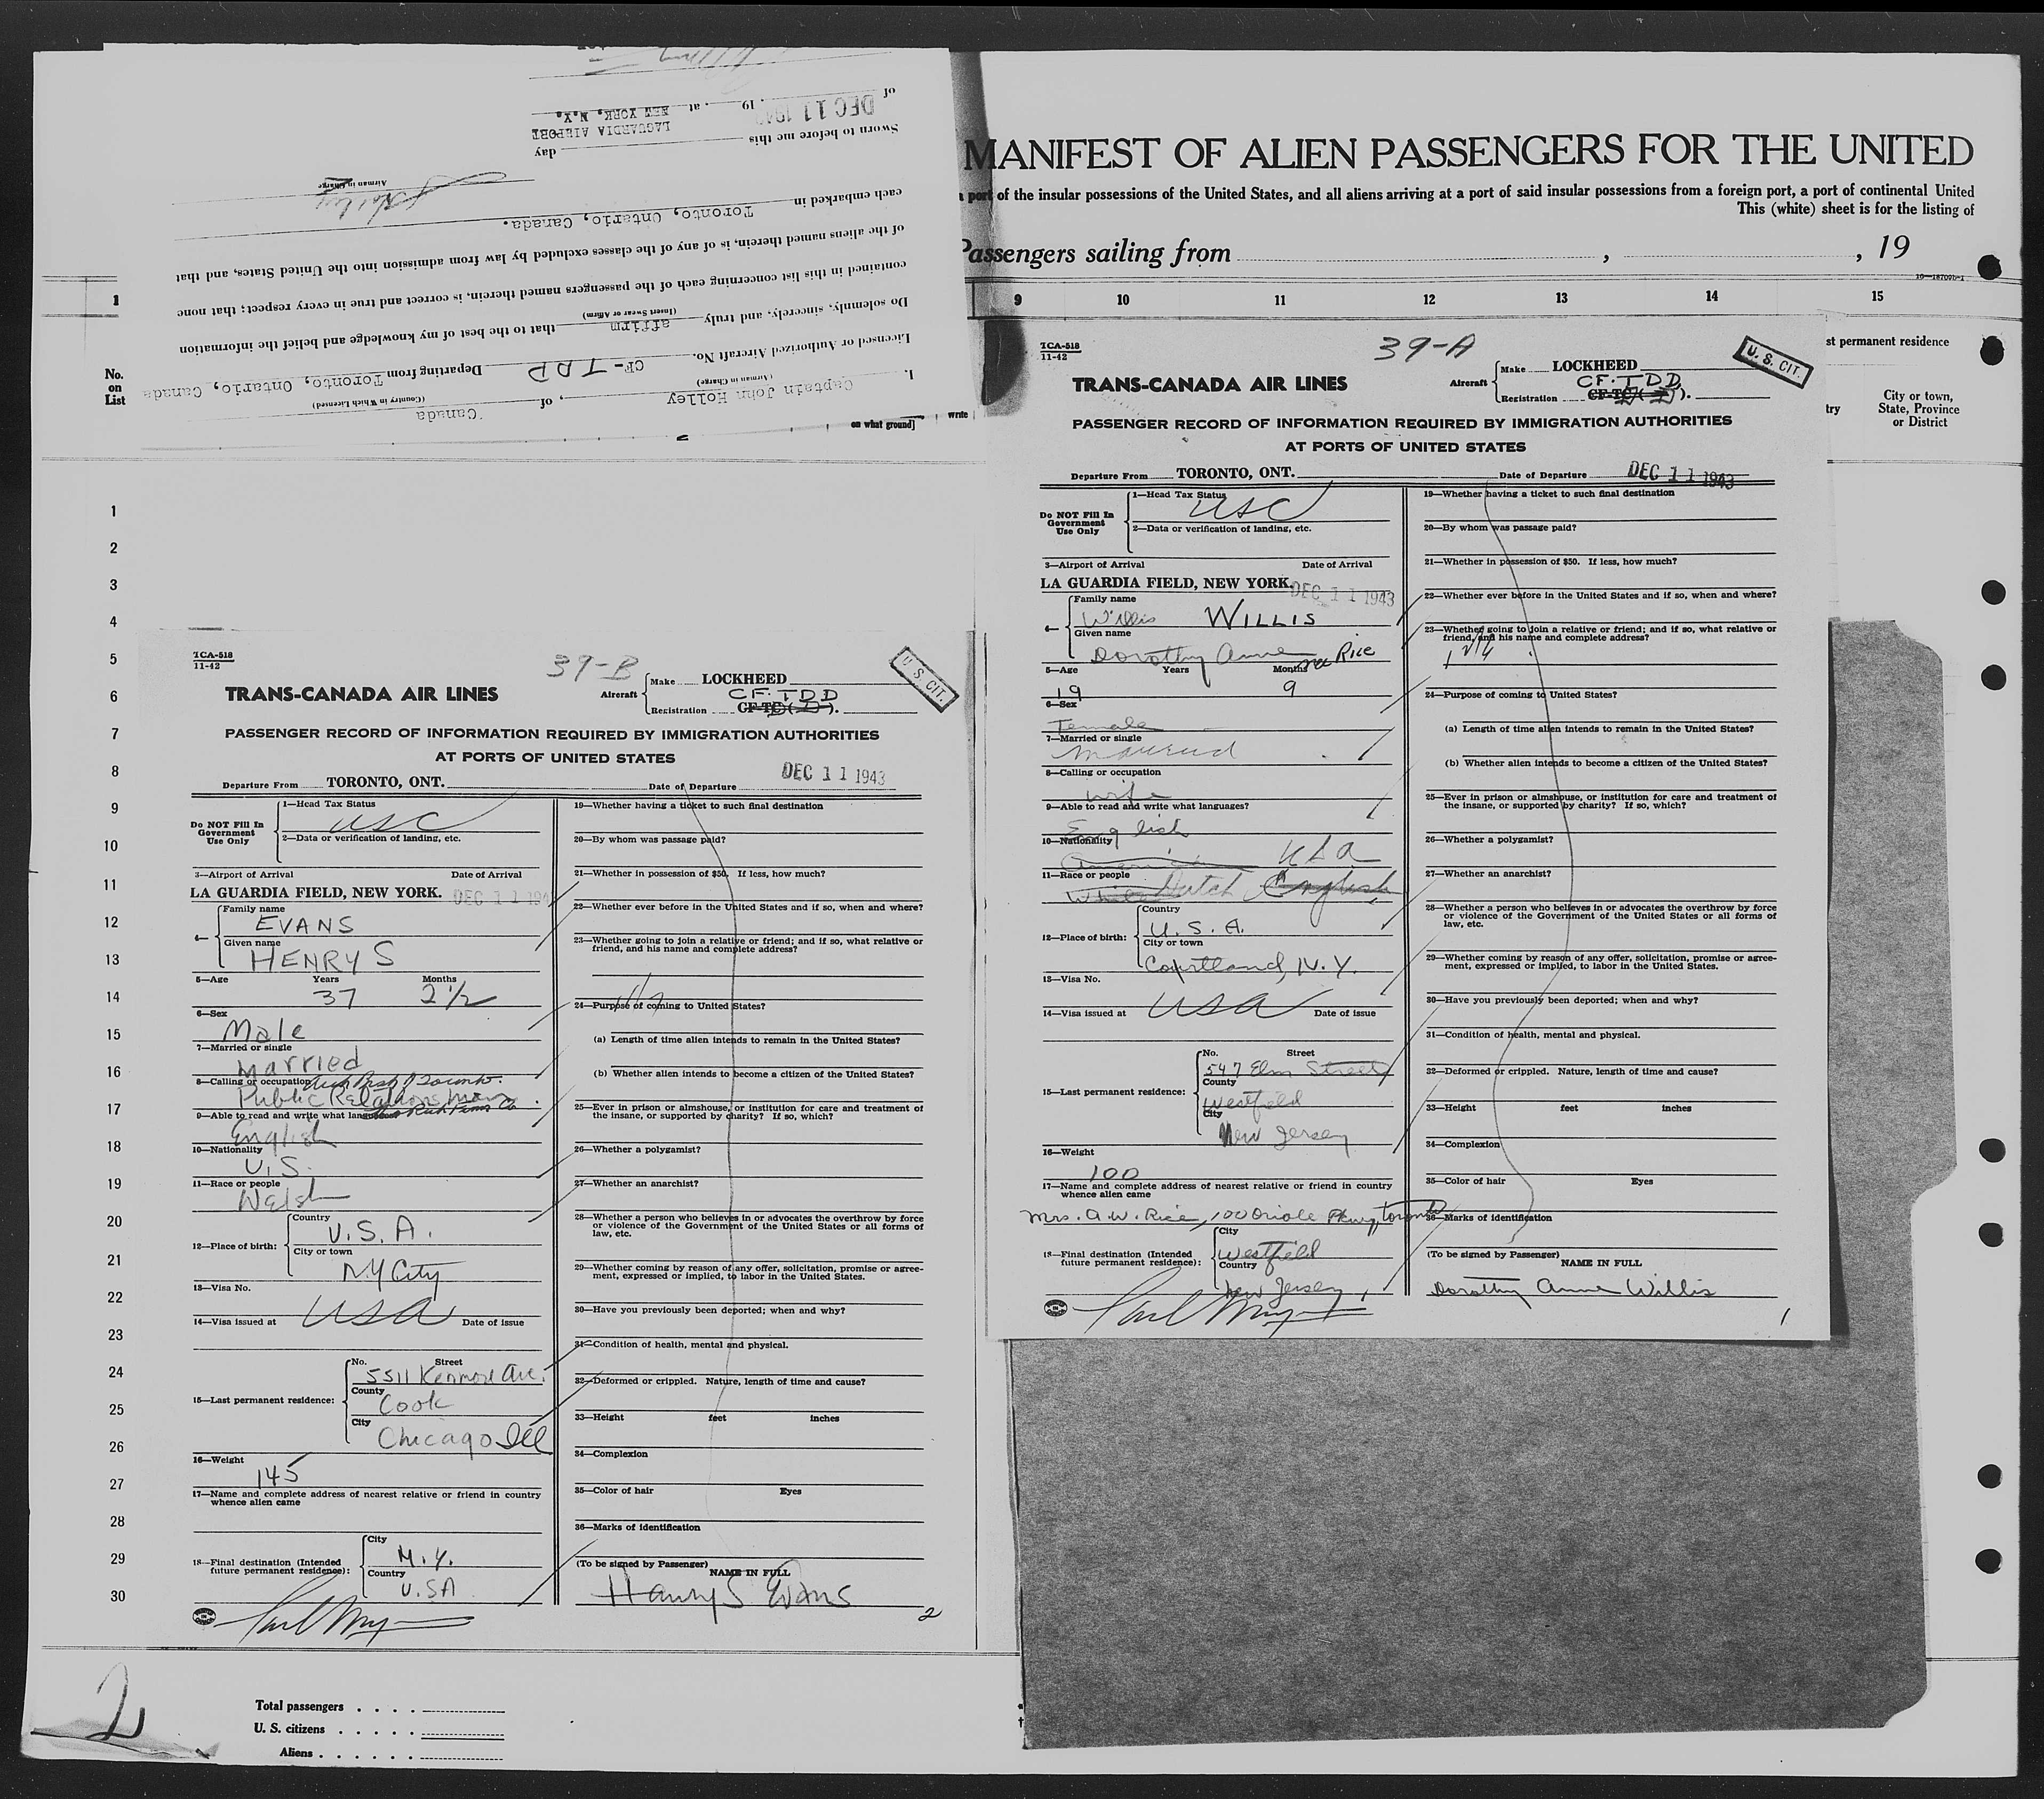 MANIFEST OF ALIEN PASSENGERS FOR THE UNITED
port of the insular possessions of the United States, and all aliens arriving at a port of said insular possessions from a foreign port, a port of continental United
This (white) sheet is for the listing of
Passengers sailing from , , 19
16—18700b-1
1
9 10 11 12 13 14 15
st permanent residence
try
City or town,
State, Province
or District
No.
on
List
write
on what ground]
I, Captain John Holley, of Canada
(Airman in Charge) (Country in Which Licensed)
Licensed or Authorized Aircraft No. CF-TDD Departing from Toronto, Ontario, Canada
Do solemnly, sincerely, and truly affirm that to the best of my knowledge and belief the information
(Insert Swear or Affirm)
contained in this list concerning each of the passengers named therein, is correct and true in every respect; that none
of the aliens named therein, is of any of the classes excluded by law from admission into the United States, and that
each embarked in Toronto, Ontario, Canada.
J Holley
Airman in Charge
Sworn to before me this day
LAGUARDIA AIRPORT
of DEC 11 194 , 19 , at NEW YORK, N.Y.
1
2
3
4
5
6
7
8
9
10
11
12
13
14
15
16
17
18
19
20
21
22
23
24
25
26
27
28
29
30
TCA-518
11-42
39-B
U. S. CIT.
TRANS-CANADA AIR LINES
Aircraft
Make LOCKHEED
CF-TDD
Registration CF-TC ( ).
PASSENGER RECORD OF INFORMATION REQUIRED BY IMMIGRATION AUTHORITIES
AT PORTS OF UNITED STATES
Departure From TORONTO, ONT. Date of Departure DEC 11 1943
Do NOT Fill In
Government
Use Only
1—Head Tax Status
USC
2—Data or verification of landing, etc.
3—Airport of Arrival Date of Arrival
LA GUARDIA FIELD, NEW YORK. DEC 11 194
4—
Family name
EVANS
Given name
HENRY S
5—Age Years Months
37 2 1/2
6—Sex
Male
7—Married or single
Married
8—Calling or occupation
Public Relations Man
9—Able to read and write what languages?
English
10—Nationality
U.S.
11—Race or people
Welsh
12—Place of birth:
Country
U.S.A.
City or town
N.Y City
13—Visa No.
USA
14—Visa issued at Date of issue
15—Last permanent residence:
No. Street
5511 Kenmore Ave.
County
Cook
City
Chicago Ill
16—Weight
145
17—Name and complete address of nearest relative or friend in country
whence alien came
18—Final destination (Intended
future permanent residence):
City
N.Y.
Country
U.SA
19—Whether having a ticket to such final destination
20—By whom was passage paid?
21—Whether in possession of $50. If less, how much?
22—Whether ever before in the United States and if so, when and where?
23—Whether going to join a relative or friend; and if so, what relative or
friend, and his name and complete address?
24—Purpose of coming to United States?
(a) Length of time alien intends to remain in the United States?
(b) Whether alien intends to become a citizen of the United States?
25—Ever in prison or almshouse, or institution for care and treatment of
the insane, or supported by charity? If so, which?
26—Whether a polygamist?
27—Whether an anarchist?
28—Whether a person who believes in or advocates the overthrow by force
or violence of the Government of the United States or all forms of
law, etc.
29—Whether coming by reason of any offer, solicitation, promise or agree-
ment, expressed or implied, to labor in the United States.
30—Have you previously been deported; when and why?
31—Condition of health, mental and physical.
32—Deformed or crippled. Nature, length of time and cause?
33—Height feet inches
34—Complexion
35—Color of hair Eyes
36—Marks of identification
(To be signed by Passenger)
NAME IN FULL
Henry S Evans
2
TCA-518
11-42
39-A
U. S. CIT.
TRANS-CANADA AIR LINES
Aircraft
Make LOCKHEED
CF-TDD
Registration CF-TC ( ).
PASSENGER RECORD OF INFORMATION REQUIRED BY IMMIGRATION AUTHORITIES
AT PORTS OF UNITED STATES
Departure From TORONTO, ONT. Date of Departure DEC 11 1943
Do NOT Fill In
Government
Use Only
1—Head Tax Status
USC
2—Data or verification of landing, etc.
3—Airport of Arrival Date of Arrival
LA GUARDIA FIELD, NEW YORK. DEC 11 1943
4—
Family name
Willis WILLIS
Given name
Dorothy Anne née Rice
5—Age Years Months
19 9
6—Sex
Female
7—Married or single
Married
8—Calling or occupation
wife
9—Able to read and write what languages?
English
10—Nationality
American USA
11—Race or people
White Dutch English
12—Place of birth:
Country
U.S.A.
City or town
Cortland, N.Y.
13—Visa No.
USA
14—Visa issued at Date of issue
15—Last permanent residence:
No. Street
547 Elm Street
County
Westfield
City
New Jersey
16—Weight
100
17—Name and complete address of nearest relative or friend in country
whence alien came
Mrs. A.W. Rice, 100 Oriole Pkwy, Toronto
18—Final destination (Intended
future permanent residence):
City
Westfield
Country
New Jersey
19—Whether having a ticket to such final destination
20—By whom was passage paid?
21—Whether in possession of $50. If less, how much?
22—Whether ever before in the United States and if so, when and where?
23—Whether going to join a relative or friend; and if so, what relative or
friend, and his name and complete address?
24—Purpose of coming to United States?
(a) Length of time alien intends to remain in the United States?
(b) Whether alien intends to become a citizen of the United States?
25—Ever in prison or almshouse, or institution for care and treatment of
the insane, or supported by charity? If so, which?
26—Whether a polygamist?
27—Whether an anarchist?
28—Whether a person who believes in or advocates the overthrow by force
or violence of the Government of the United States or all forms of
law, etc.
29—Whether coming by reason of any offer, solicitation, promise or agree-
ment, expressed or implied, to labor in the United States.
30—Have you previously been deported; when and why?
31—Condition of health, mental and physical.
32—Deformed or crippled. Nature, length of time and cause?
33—Height feet inches
34—Complexion
35—Color of hair Eyes
36—Marks of identification
(To be signed by Passenger)
NAME IN FULL
Dorothy Anne Willis
1
2
Total passengers . . . .
U. S. citizens . . . . .
Aliens . . . . . .